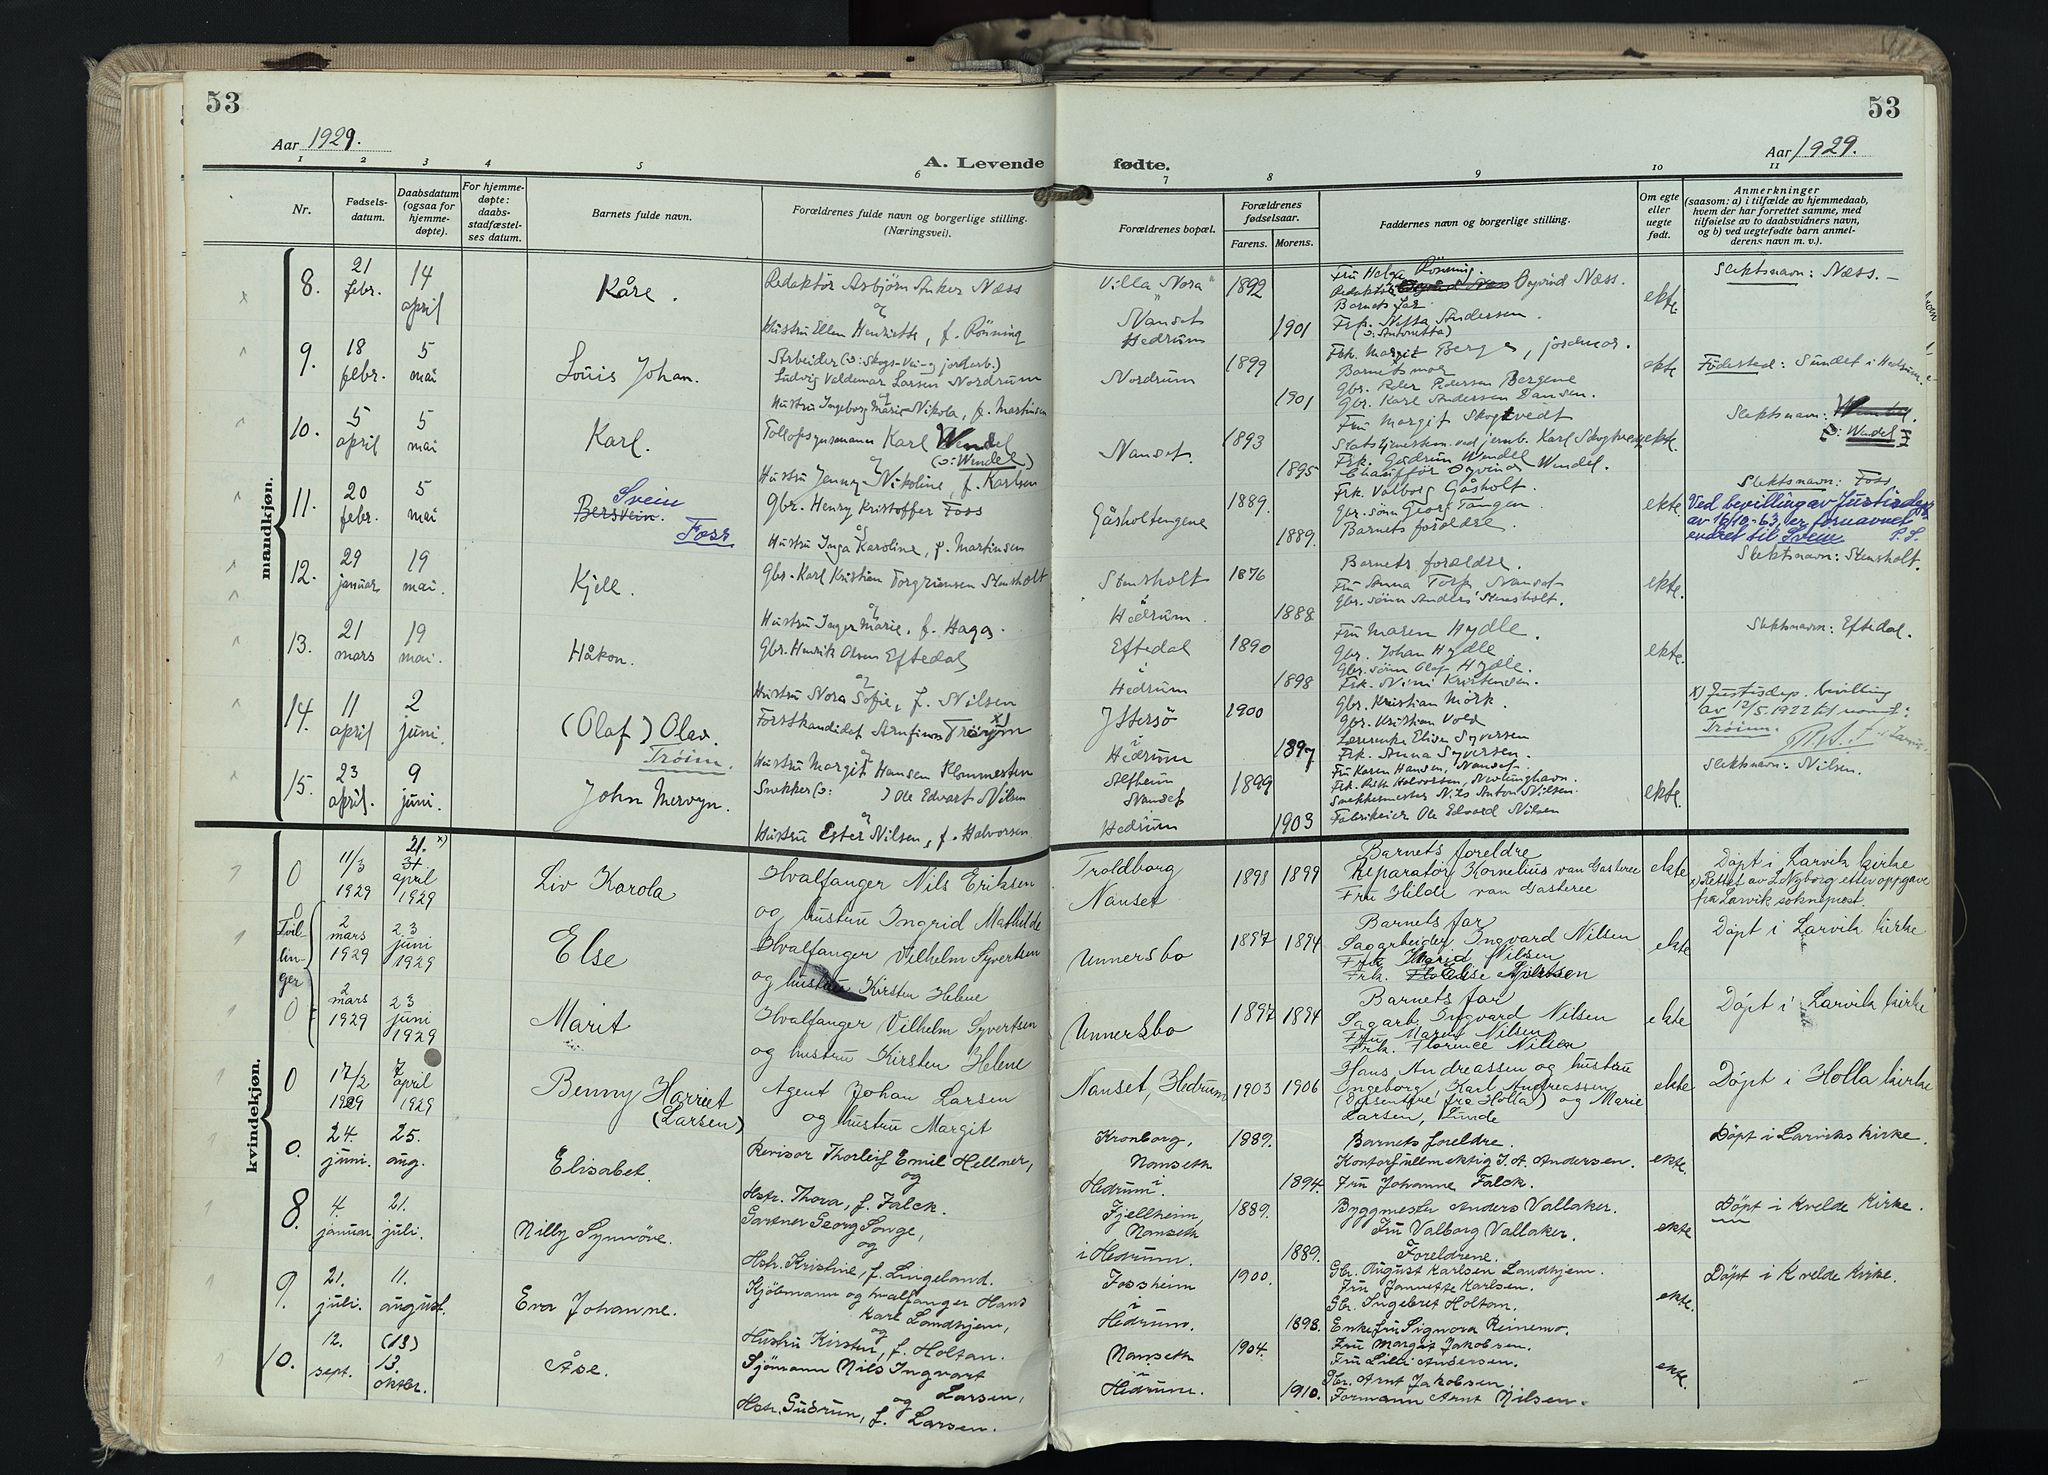 53
53
Aar 1929.
Aar 1929.
A. Levende fødte.
1 2 3 4 5 6 7 8 9 10 11
Nr.
Fødsels-
datum.
Daabsdatum
(ogsaa for
hjemme-
døpte).
For hjemme-
døpte:
daabs-
stadfæstel-
ses datum.
Barnets fulde navn.
Forældrenes fulde navn og borgerlige stilling.
(Næringsvei).
Forældrenes bopæl.
Forældrenes
fødselsaar.
Farens. Morens.
Faddernes navn og borgerlige stilling.
Om egte
eller
uegte
født.
Anmerkninger
(saasom: a) i tilfælde av hjemmedaab,
hvem der har forrettet samme, med
tilføielse av to daabsvidners navn,
og b) ved uegtefødte barn anmel-
derens navn m. v.).
mandkjøn.
8. 21 febr. 14 april
Kåre.
Redaktør Asbjørn Anker Næss
og
Hustru Ellen Henriette, f. Rönning
"Villa Nora"
Nanset
Hedrum
1892
1901
Fru Helga Rönning.
Redaktör Öyvind Næss.
Barnets far.
Frk. Netta Andersen.
(ɔ: Antonetta)
ekte.
Slektsnavn: Næss. –
9. 18 febr. 5 mai
Louis Johan.
Arbeider (ɔ: Skogs- Vei- og jordarb.)
Ludvig Valdemar Larsen Nordrum
og
Hustru Ingeborg Marie Nikola, f. Martinsen
Nordrum
1899
1901
Frk. Margit Berge, jordmor.
Barnets mor
Gbr. Peder Pedersen Bergene
Gbr. Karl Andersen Dansen.
ekte
Födested: Sundet i Hedrum.
10. 5 april 5 mai
Karl.
Karl Wendel
(ɔ: Wendel)
og
Hustru Jenny Nikoline, f. Karlsen
Nanset.
1893
1895
Fru Margit Skogtvedt
Frk. Gudrun Wendel
Chauffør Öyvind Wendel.
ekte.
Slektsnavn:
[ɔ: Wendel]
11. 20 febr. 5 mai
Svein
Bersvein.
Foss
Gbr. Henry Kristoffer Foss
og
Hustru Inga Karoline, f. Martinsen
Gåsholtengene
1889.
1889.
Frk. Valborg Gåsholt.
Gbr. sönn Georg Tangen
Barnets foreldre.
ekte
Slektsnavn: Foss
Ved bevilling av Justisdept.
av 16/10-63, er fornavnet
endret til Svein
12. 29 januar 19 mai.
Kjell.
Gbr. Karl Kristian Torgriensen Stensholt
og
Hustru Inger Marie, f. Haga.
Stensholt
i
Hedrum.
1876
1888
Barnets foreldre.
Fru Anna Torp, Nanset
Gbr. sönn Anders Stensholt.
ekte.
Slektsnavn: Stensholt.
13. 21 mars 19 mai.
Håkon.
Gbr. Henrik Olsen Eftedal
og
Hustru Nora Sofie, f. Nilsen
Eftedal
i
Hedrum
1890
1898
Fru Maren Hydle.
Gbr. Johan Hydle
Gbr. sönn Olaf Hydle.
Frk. Nini Kristensen.
ekte.
Slektsnavn: Eftedal.
14. 11 april 2 juni.
(Olaf) Olav.
Tröim.
Forstkandidat Arnfinn Tröim x)
og
Hustru Margit Hansen Klommesten
Jttersö
i
Hedrum
1900
1897
Gbr. Kristian Mörk.
Gbr. Kristian Vold
Lærerinke Elise Syversen
Frk. Anna Syversen.
x) Justisdep. bevilling
av 12/5.1922 til navnet:
Tröim.
15. 23 april. 9 juni.
John Mervyn.
Snekker (ɔ: ) Ole Edvart Nilsen
og
Hustru Ester Nilsen, f. Halvorsen.
Alfheim
Nanset
Hedrum
1899
1903
Fru Karen Hansen, Nanset.
Frk. Halvorsen, Nevlunghavn.
Snekkermester Nils Anton Nilsen.
Fabrikeier Ole Edvard Nilsen
ekte.
Slektsnavn: Nilsen.
kvindekjøn.
0 11/3 1929 21. x) april 1929
Liv Karola
Hvalfanger Nils Eriksen
og hustru Ingrid Mathilde
Troldborg
Nanset
1898 1899
Barnets foreldre
Reparatör Kornelius van Gasteree
Fru Hilde van Gasteree
ekte
Döpt i Larvik kirke
x) Rettet av L. Nyborg etter oppgave
fra Larvik sokneprest.
Tvil-
lin-
ger
0 2 mars 1929 23 juni 1929
Else
Hvalfanger Vilhelm Syvertsen
og hustru Kirsten Helene
Unnersbo
1897 1894
Barnets far
Sagarbeider Ingvard Nilsen
Fru Marid Nilsen
ekte
Döpt i Larvik kirke
0 2 mars 1929 23 juni 1929
Marit
Hvalfanger Vilhelm Syvertsen
og hustru Kirsten Helene
Unnersbo
1897 1894
Barnets far
Sagarb. Ingvard Nilsen
Fru Marid Nilsen
Frk. Florence Nilsen
ekte
Döpt i Larvik kirke
0 17/2 1929 7 april 1929
Benny Harriet
(Larsen)
Agent Johan Larsen
og hustru Margit
Nanset, Hedrum
1903 1906
Hans Andreassen og hustru
Ingeborg, Karl Andreassen
(Dissentere fra Holla) og Marie
Larsen, Lunde
ekte
Döpt i Holla kirke
0. 24. juni. 25. aug.
Elisabet.
Revisor Thorleif Emil Hellner,
og
Hstr. Thora, f. Falck.
Kronborg,
Nanseth
i
Hedrum.
1889.
1894.
Barnets foreldre.
Kontorfullmektig J. A. Andersen.
Fru Johanne Falck.
ekte.
Döpt i Larviks kirke.
8. 4. januar 21. juli.
Nilly Synnöve.
Gartner Georg Songe,
og
Hstr. Kristine, f. Lingeland.
Fjellheim,
Nanseth
i Hedrum.
1889.
1889.
Byggmester Anders Vallaker.
Fru Valborg Vallaker.
Foreldrene.
ekte
Döpt i Kvelde kirke.
9. 21. juli. 11. august.
Eva Johanne.
Kjöbmann og hvalfanger Hans
Karl Landhjem,
og
Hustru Kirsten, f. Holtan.
Fossheim
i
Hedrum.
1900.
1898.
Gbr. August Karlsen Landhjem.
Fru Jannette Karlsen.
Gbr. Ingebret Holtan.
Enkefru Signora Reinemo.
ekte.
Döpt i Kvelde kirke.
10. 12. sept. (13) 13. oktbr.
Åse.
Sjömann Nils Ingvart
Larsen,
og
Hstr. Gudrun, f. Larsen.
Nanseth
i
Hedrum.
1904.
1910.
Fru Margit Jakobsen.
Fru Lilli Andersen.
Gbr. Arnt Jakobsen.
Formann Arnt Nilsen.
ekte.